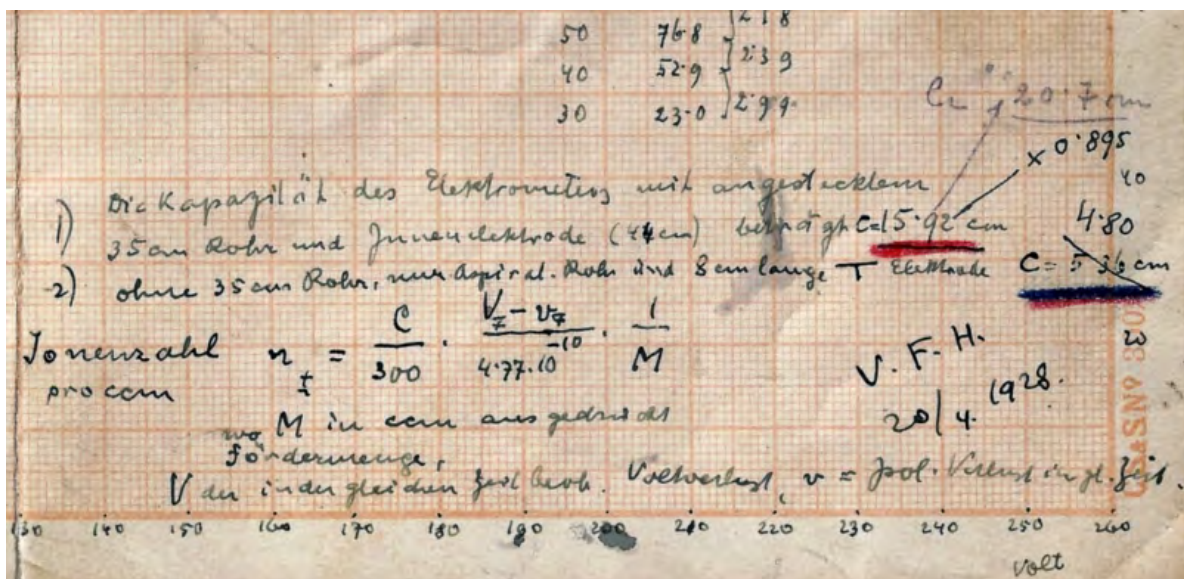 50 76.8
40 52.9 2.39
30 23.0 2.99
20.7 cm
× 0.895
40
1) Die Kapazität des Elektrometers mit angestecktem
35 cm Rohr und Innenelektrode (44 cm) beträgt C=15.92 cm
4.80
2) ohne 35 cm Rohr, nur Aspirat. Rohr und 8 cm lange Elektrode C = 5.36 cm
Ionenzahl n± = C/300 · V∓ - v∓/4.77.10^-10 · 1/M
pro ccm
20
V. F. H.
20/4. 1928.
wo M in ccm ausgedrückt
Fördermenge,
V der in der gleichen Zeit beob. Voltverlust, v = Verlust in gl. Zeit.
130 140 150 160 170 180 190 200 210 220 230 240 250 260
Volt